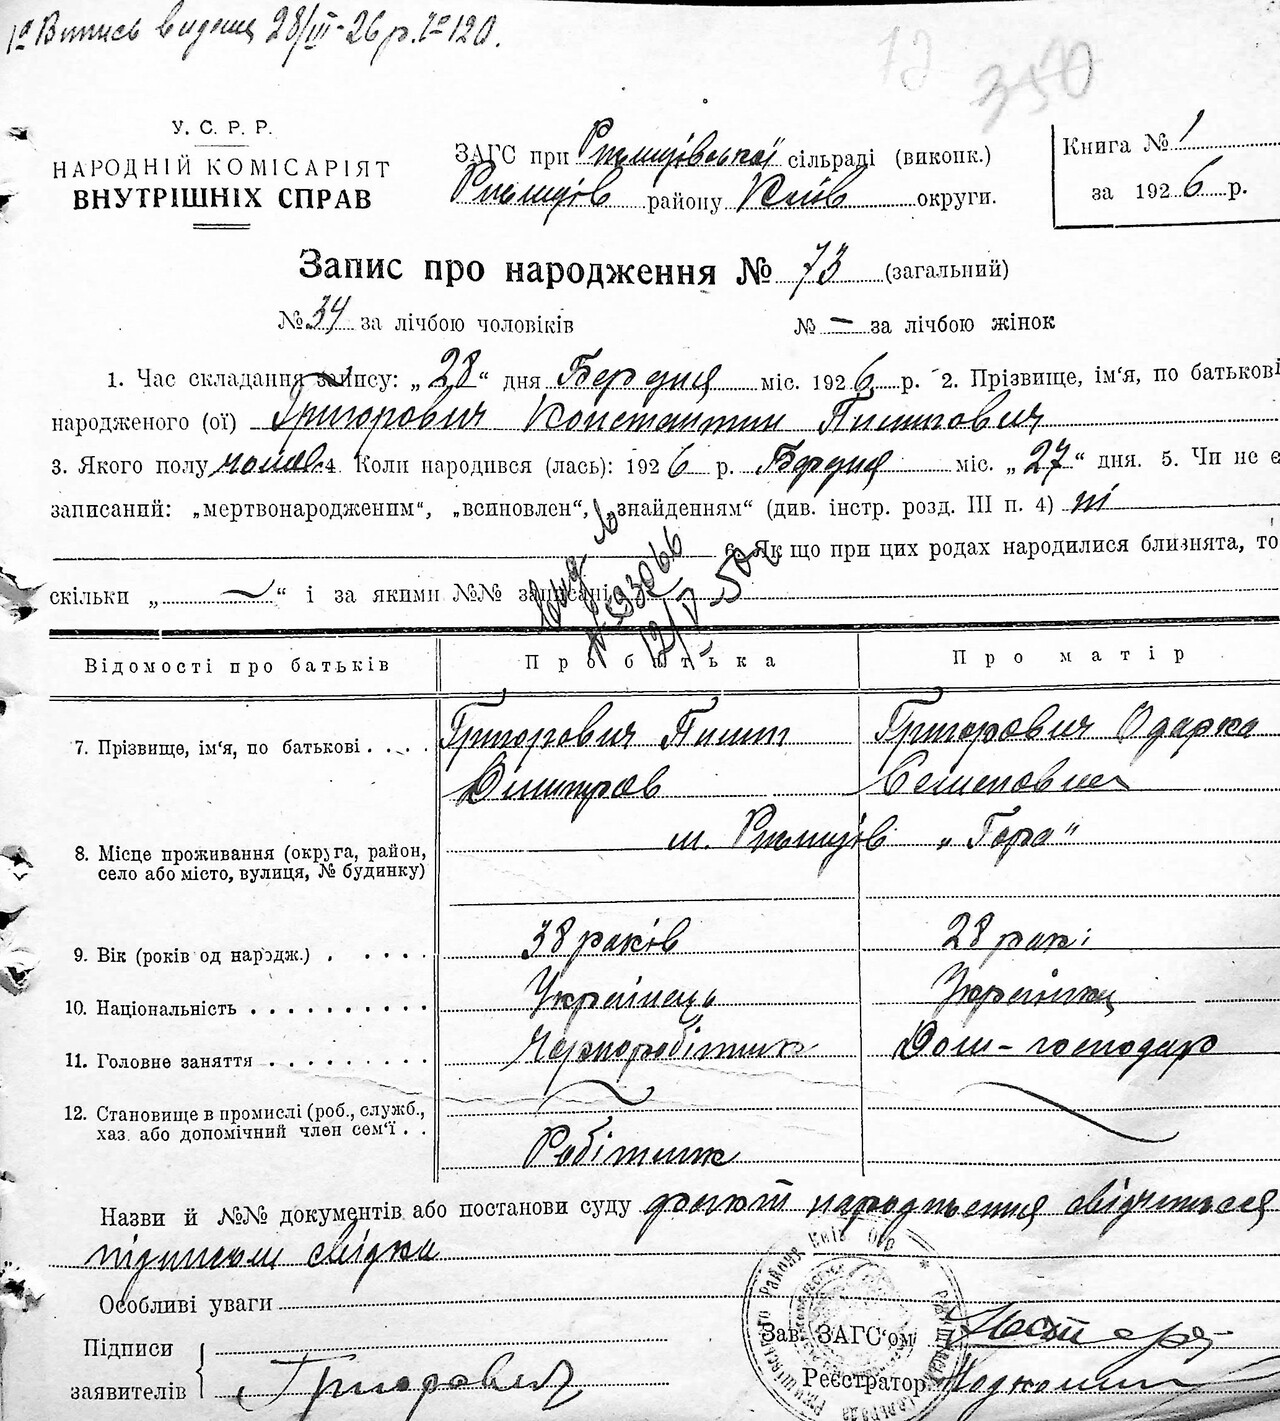 1а Випись видана 28/III-26 р. № 120.
350
У. С. Р. Р.
НАРОДНІЙ КОМІСАРІЯТ
ВНУТРІШНІХ СПРАВ
ЗАГС при Ржищівської сільраді (виконк.)
Ржищів району Київ округи.
Книга № 1
за 1926 р.
Запис про народження № 73 (загальний)
№ 34 за лічбою чоловіків № — за лічбою жінок
1. Час складання запису: „28“ дня Березня міс. 1926 р. 2. Прізвище, ім‘я, по батькові
народженого (ої) Григорович Константин Пилипович
3. Якого полу чолов. 4. Коли народився (лась): 1926 р. Березня міс. „27“ дня. 5. Чи не є
записаний: „мертвонародженим“, „всиновлен“, „знайденням“ (див. інстр. розд. III п. 4) ні
6. Як що при цих родах народилися близнята, то
скільки „ — “ і за якими №№ записані
12/IV-50
Відомості про батьків Про батька Про матір
7. Прізвище, ім‘я, по батькові . . . . Григорович Пилип Григорович Одарка
Дмитров Семеновна
8. Місце проживання (округа, район, м. Ржищів „Гора“
село або місто, вулиця, № будинку)
9. Вік (років од народж.) . . . . . 38 років 28 рокі
10. Національність . . . . . . . . . . Українець Українка
11. Головне заняття . . . . . . . . Чорноробітник Дом-господар
12. Становище в промислі (роб., служб.,
хаз. або допомічний член сем‘ї . . Робітник
Назви й №№ документів або постанови суду факт народження свідчиться
підписом свідка
Особливі уваги
Підписи
заявителів Григорович
Зав. ЗАГС‘ом
Реєстратор